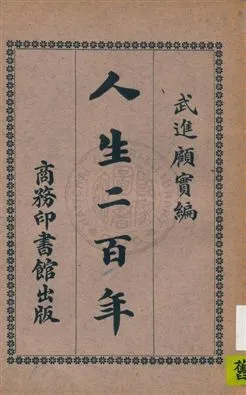 武進顧實編
人生二百年
商務印書館出版
舊